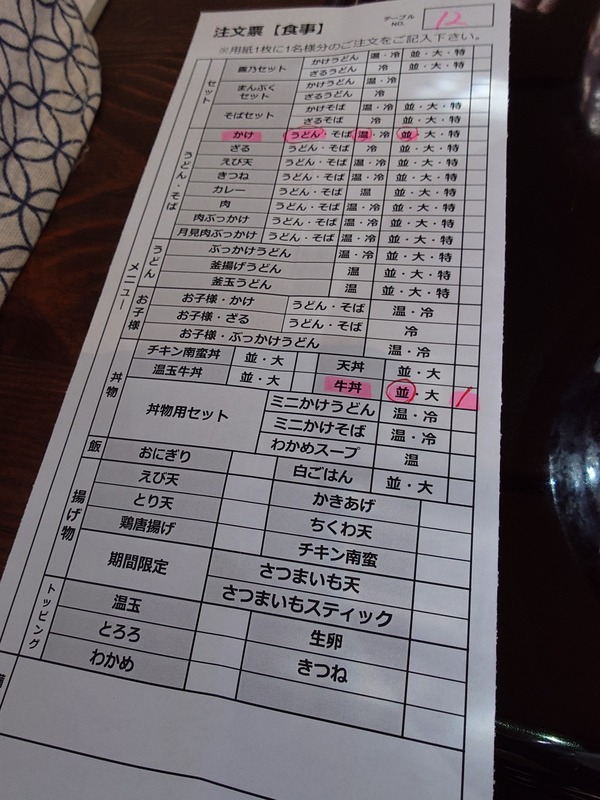 注文票【食事】
テーブルNO. 12
※用紙1枚に1名様分のご注文をご記入下さい。
メニュー
セット
霧乃セット かけうどん 温・冷 並・大・特
ざるうどん 冷 並・大・特
まんぷくセット かけうどん 温・冷
ざるうどん 冷
そばセット かけそば 温・冷 並・大・特
ざるそば 冷 並・大・特
うどん・そば
かけ うどん・そば 温・冷 並・大・特
ざる うどん・そば 冷 並・大・特
えび天 うどん・そば 温・冷 並・大・特
きつね うどん・そば 温・冷 並・大・特
カレー うどん・そば 温 並・大・特
肉 うどん・そば 温・冷 並・大・特
肉ぶっかけ うどん・そば 温・冷 並・大・特
月見肉ぶっかけ うどん・そば 温・冷 並・大・特
うどん
ぶっかけうどん 温・冷 並・大・特
釜揚げうどん 温 並・大・特
釜玉うどん 温 並・大・特
お子様
お子様・かけ うどん・そば 温・冷
お子様・ざる うどん・そば 冷
お子様・ぶっかけうどん 温・冷
丼物
チキン南蛮丼 並・大 天丼 並・大
温玉牛丼 並・大 牛丼 並・大 1
丼物用セット ミニかけうどん 温・冷
ミニかけそば 温・冷
わかめスープ 温
飯
おにぎり 白ごはん 並・大
揚げ物
えび天 かきあげ
とり天 ちくわ天
鶏唐揚げ チキン南蛮
期間限定 さつまいも天
さつまいもスティック
トッピング
温玉 生卵
とろろ きつね
わかめ